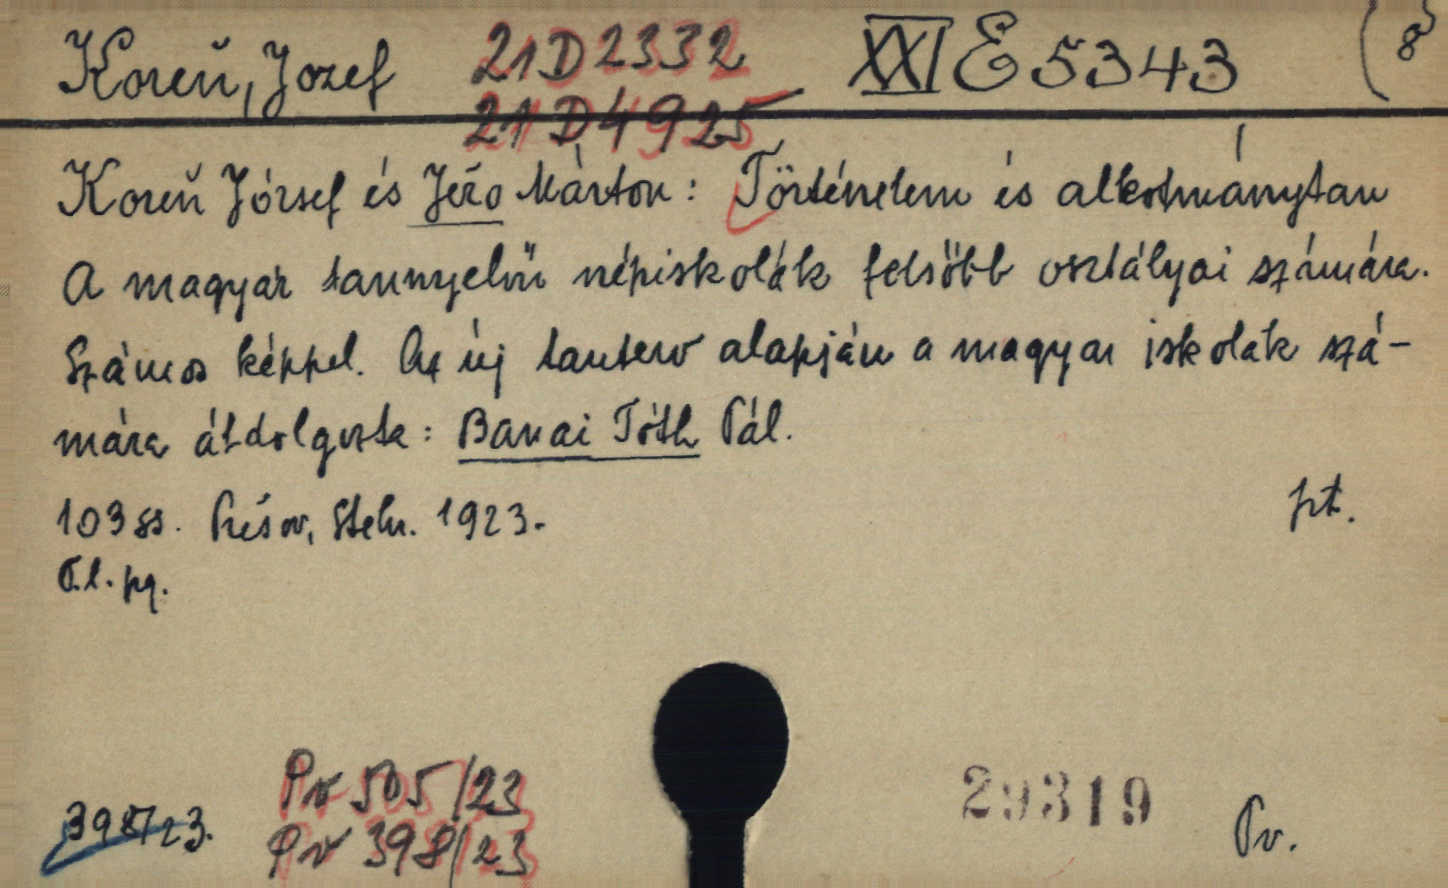 Koreň, Jozef 21D2332 XXI E 5343 (8
21D4925
Koreň József és Jeřo Márton: Történelem és alkotmánytan
A magyar tannyelvű népiskolák felsőbb osztályai számára.
Számos képpel. Az új tanterv alapján a magyar iskolák szá-
mára átdolgozta: Banai Tóth Pál.
103 ss. Prešov, Stehr. 1923. pt.
Pl. pq.
Pr 505/23
398/23. Pr 398/23 29319 Pr.